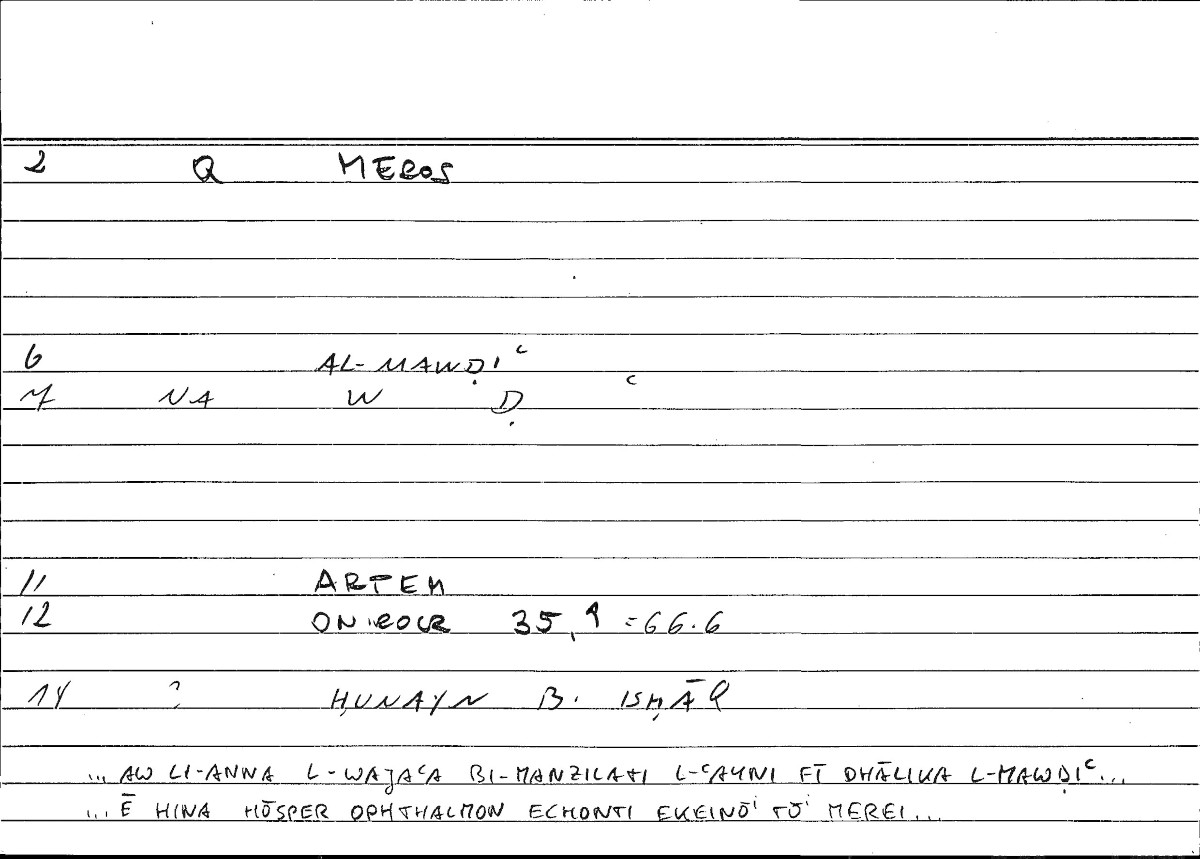 2 Q MEROS
6 AL-MAWḌIʿ
7 NA W Ḍ ʿ
11 ARTEM
12 ONIROCR 35,9 =66.6
14 ? ḤUNAYN B. ISḤĀQ
... AW LI-ANNA L-WAJAʿA BI-MANZILATI L-ʿAYNI FĪ DHĀLIKA L-MAWḌIʿ...
... Ē HINA HŌSPER OPHTHALMON ECHONTI EKEINŌⁱ TŌⁱ MEREI...